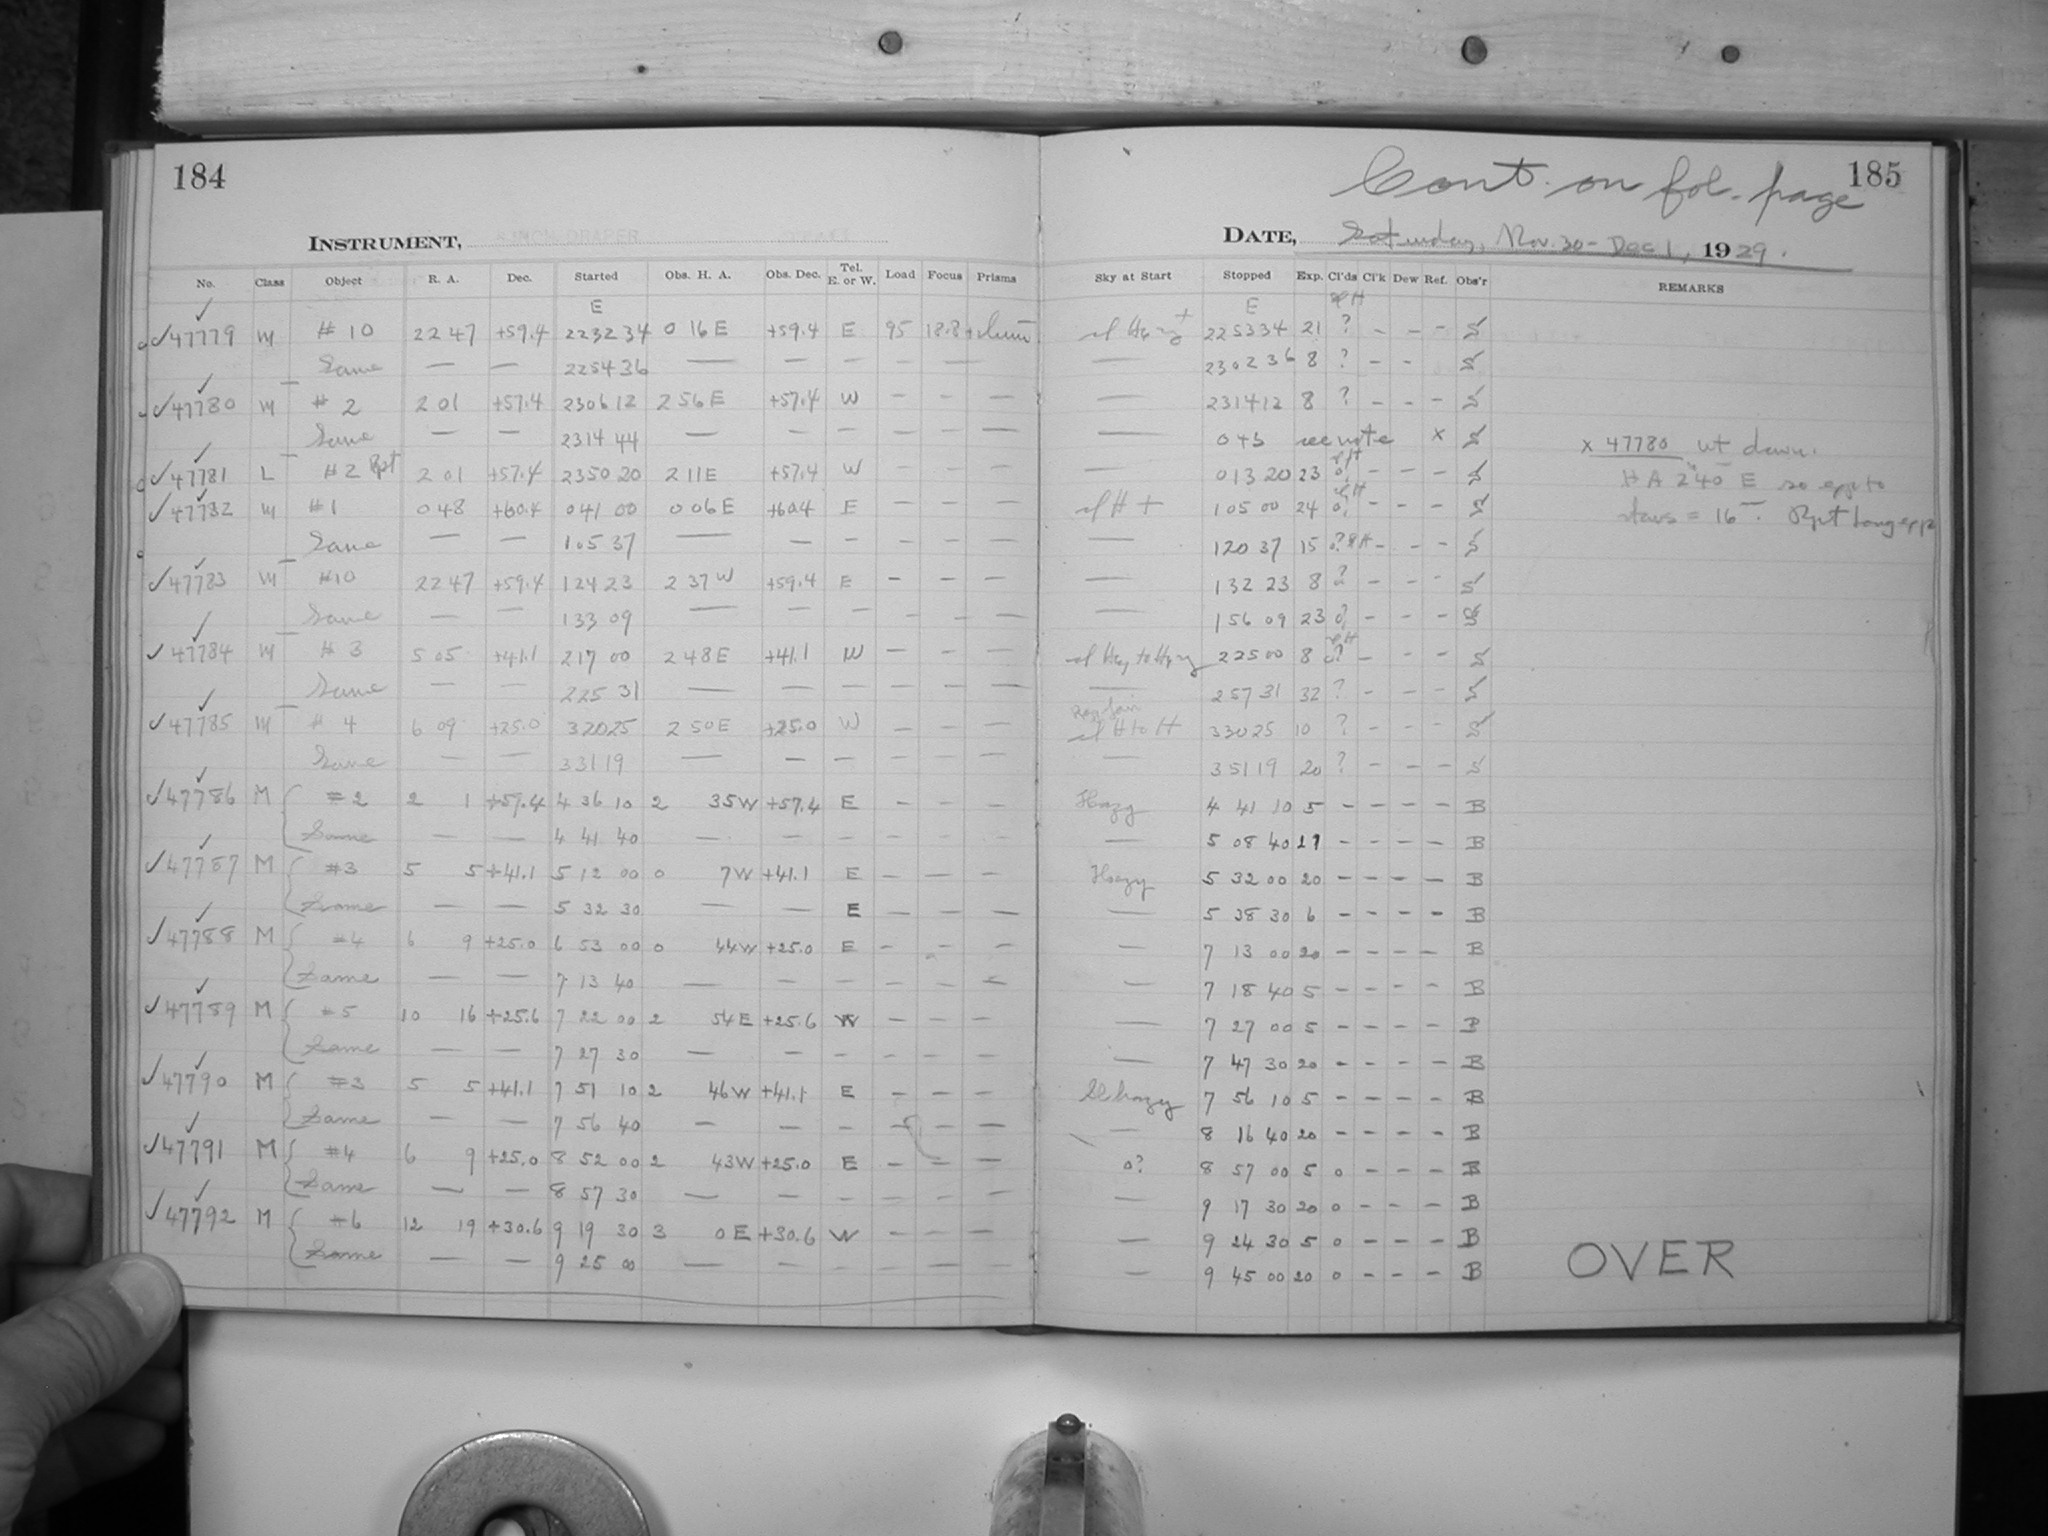 184
INSTRUMENT,
No. Class Object R. A. Dec. Started Obs. H. A. Obs. Dec. Tel. E. or W. Load Focus Prisms
E
✓47779 M #10 22 47 +59.4 22 32 34 0 16 E +59.4 E 95 18.8
Same — — 22 54 36 — — — — — —
✓47780 M #2 2 01 +57.4 23 06 12 2 56 E +57.4 W — — —
Same — — 23 14 44 — — — — — —
✓47781 L #2 Rpt 2 01 +57.4 23 50 20 2 11 E +57.4 W — — —
✓47782 M #1 0 48 +60.4 0 41 00 0 06 E +60.4 E — — —
Same — — 1 05 37 — — — — — —
✓47783 M #10 22 47 +59.4 1 24 23 2 37 W +59.4 E — — —
Same — — 1 33 09 — — — — — —
✓47784 M #3 5 05 +41.1 2 17 00 2 48 E +41.1 W — — —
Same — — 2 25 31 — — — — — —
✓47785 M #4 6 09 +25.0 3 20 25 2 50 E +25.0 W — — —
Same — — 3 31 19 — — — — — —
✓47786 M #2 2 1 +57.4 4 36 10 2 35 W +57.4 E — — —
Same — — 4 41 40 — — — — — —
✓47787 M #3 5 5 +41.1 5 12 00 0 7 W +41.1 E — — —
Same — — 5 32 30 — — E — — —
✓47788 M #4 6 9 +25.0 6 53 00 0 44 W +25.0 E — — —
Same — — 7 13 40 — — — — — —
✓47789 M #5 10 16 +25.6 7 22 00 2 54 E +25.6 W — — —
Same — — 7 27 30 — — — — — —
✓47790 M #3 5 5 +41.1 7 51 10 2 46 W +41.1 E — — —
Same — — 7 56 40 — — — — — —
✓47791 M #4 6 9 +25.0 8 52 00 2 43 W +25.0 E — — —
Same — — 8 57 30 — — — — — —
✓47792 M #6 12 19 +30.6 9 19 30 3 0 E +30.6 W — — —
Same — — 9 25 00 — — — — — —
Cont. on fol. page 185
DATE, Saturday, Nov. 30 - Dec 1, 1929.
Sky at Start Stopped Exp. Cl'ds Cl'k Dew Ref. Obs'r REMARKS
E
22 53 34 21 ? — — — S
— 23 02 36 8 ? — — S
— 23 14 12 8 ? — — — S
— 0 45 see note x S
x 47780 wt down.
— 0 13 20 23 — — — S
HA 2 40 E so
sl H + 1 05 00 24 — — — S
stars = 16
— 1 20 37 15 — — — S
— 1 32 23 8 ? — — — S
— 1 56 09 23 — — — S
2 25 00 8 ? — — — S
— 2 57 31 32 ? — — — S
sl H to H 3 30 25 10 ? — — — S
— 3 51 19 20 ? — — — S
Hazy 4 41 10 5 — — — — B
— 5 08 40 27 — — — — B
Hazy 5 32 00 20 — — — — B
— 5 38 30 6 — — — — B
— 7 13 00 20 — — — — B
— 7 18 40 5 — — — — B
— 7 27 00 5 — — — — B
— 7 47 30 20 — — — — B
Sl hazy 7 56 10 5 — — — — B
— 8 16 40 20 — — — — B
o? 8 57 00 5 0 — — — B
— 9 17 30 20 0 — — — B
— 9 24 30 5 0 — — — B
— 9 45 00 20 0 — — — B
OVER